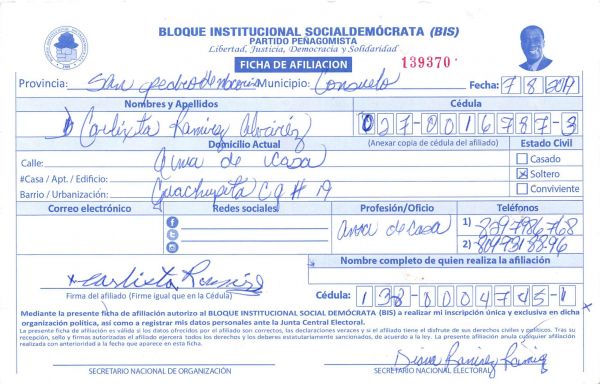 BLOQUE INSTITUCIONAL SOCIALDEMÓCRATA (BIS)
PARTIDO PEÑAGOMISTA
Libertad, Justicia, Democracia y Solidaridad
FICHA DE AFILIACION
139370
Provincia: San pedro de macoris Municipio: Consuelo Fecha: 7 8 2019
Nombres y Apellidos Cédula
Carlixta Ramirez Alvarez 027-0016787-3
Domicilio Actual (Anexar copia de cédula del afiliado) Estado Civil
Calle: Ama de casa Casado
#Casa / Apt. / Edificio: Soltero
Barrio / Urbanización: Guachupita C 9 # 19 Conviviente
Correo electrónico Redes sociales Profesión/Oficio Teléfonos
ama de casa 1) 829 7986768
2) 809 931 8896
Nombre completo de quien realiza la afiliación
Firma del afiliado (Firme igual que en la Cédula) Cédula: 138-0004745-1
Mediante la presente ficha de afiliación autorizo al BLOQUE INSTITUCIONAL SOCIAL DEMÓCRATA (BIS) a realizar mi inscripción única y exclusiva en dicha
organización política, así como a registrar mis datos personales ante la Junta Central Electoral.
La presente ficha de afiliación es válida si los datos ofrecidos por el afiliado son correctos, las declaraciones veraces y si el afiliado tiene el disfrute de sus derechos civiles y políticos. Tras su
recepción, sello y firmas autorizadas el afiliado ejercerá todos los derechos y los deberes estatutariamente sancionados, de acuerdo a la ley. La presente afiliación anula cualquier afiliación
realizada con anterioridad a la fecha que aparece en esta ficha.
Diana Ramirez Ramirez
SECRETARIO NACIONAL DE ORGANIZACIÓN SECRETARIO NACIONAL ELECTORAL